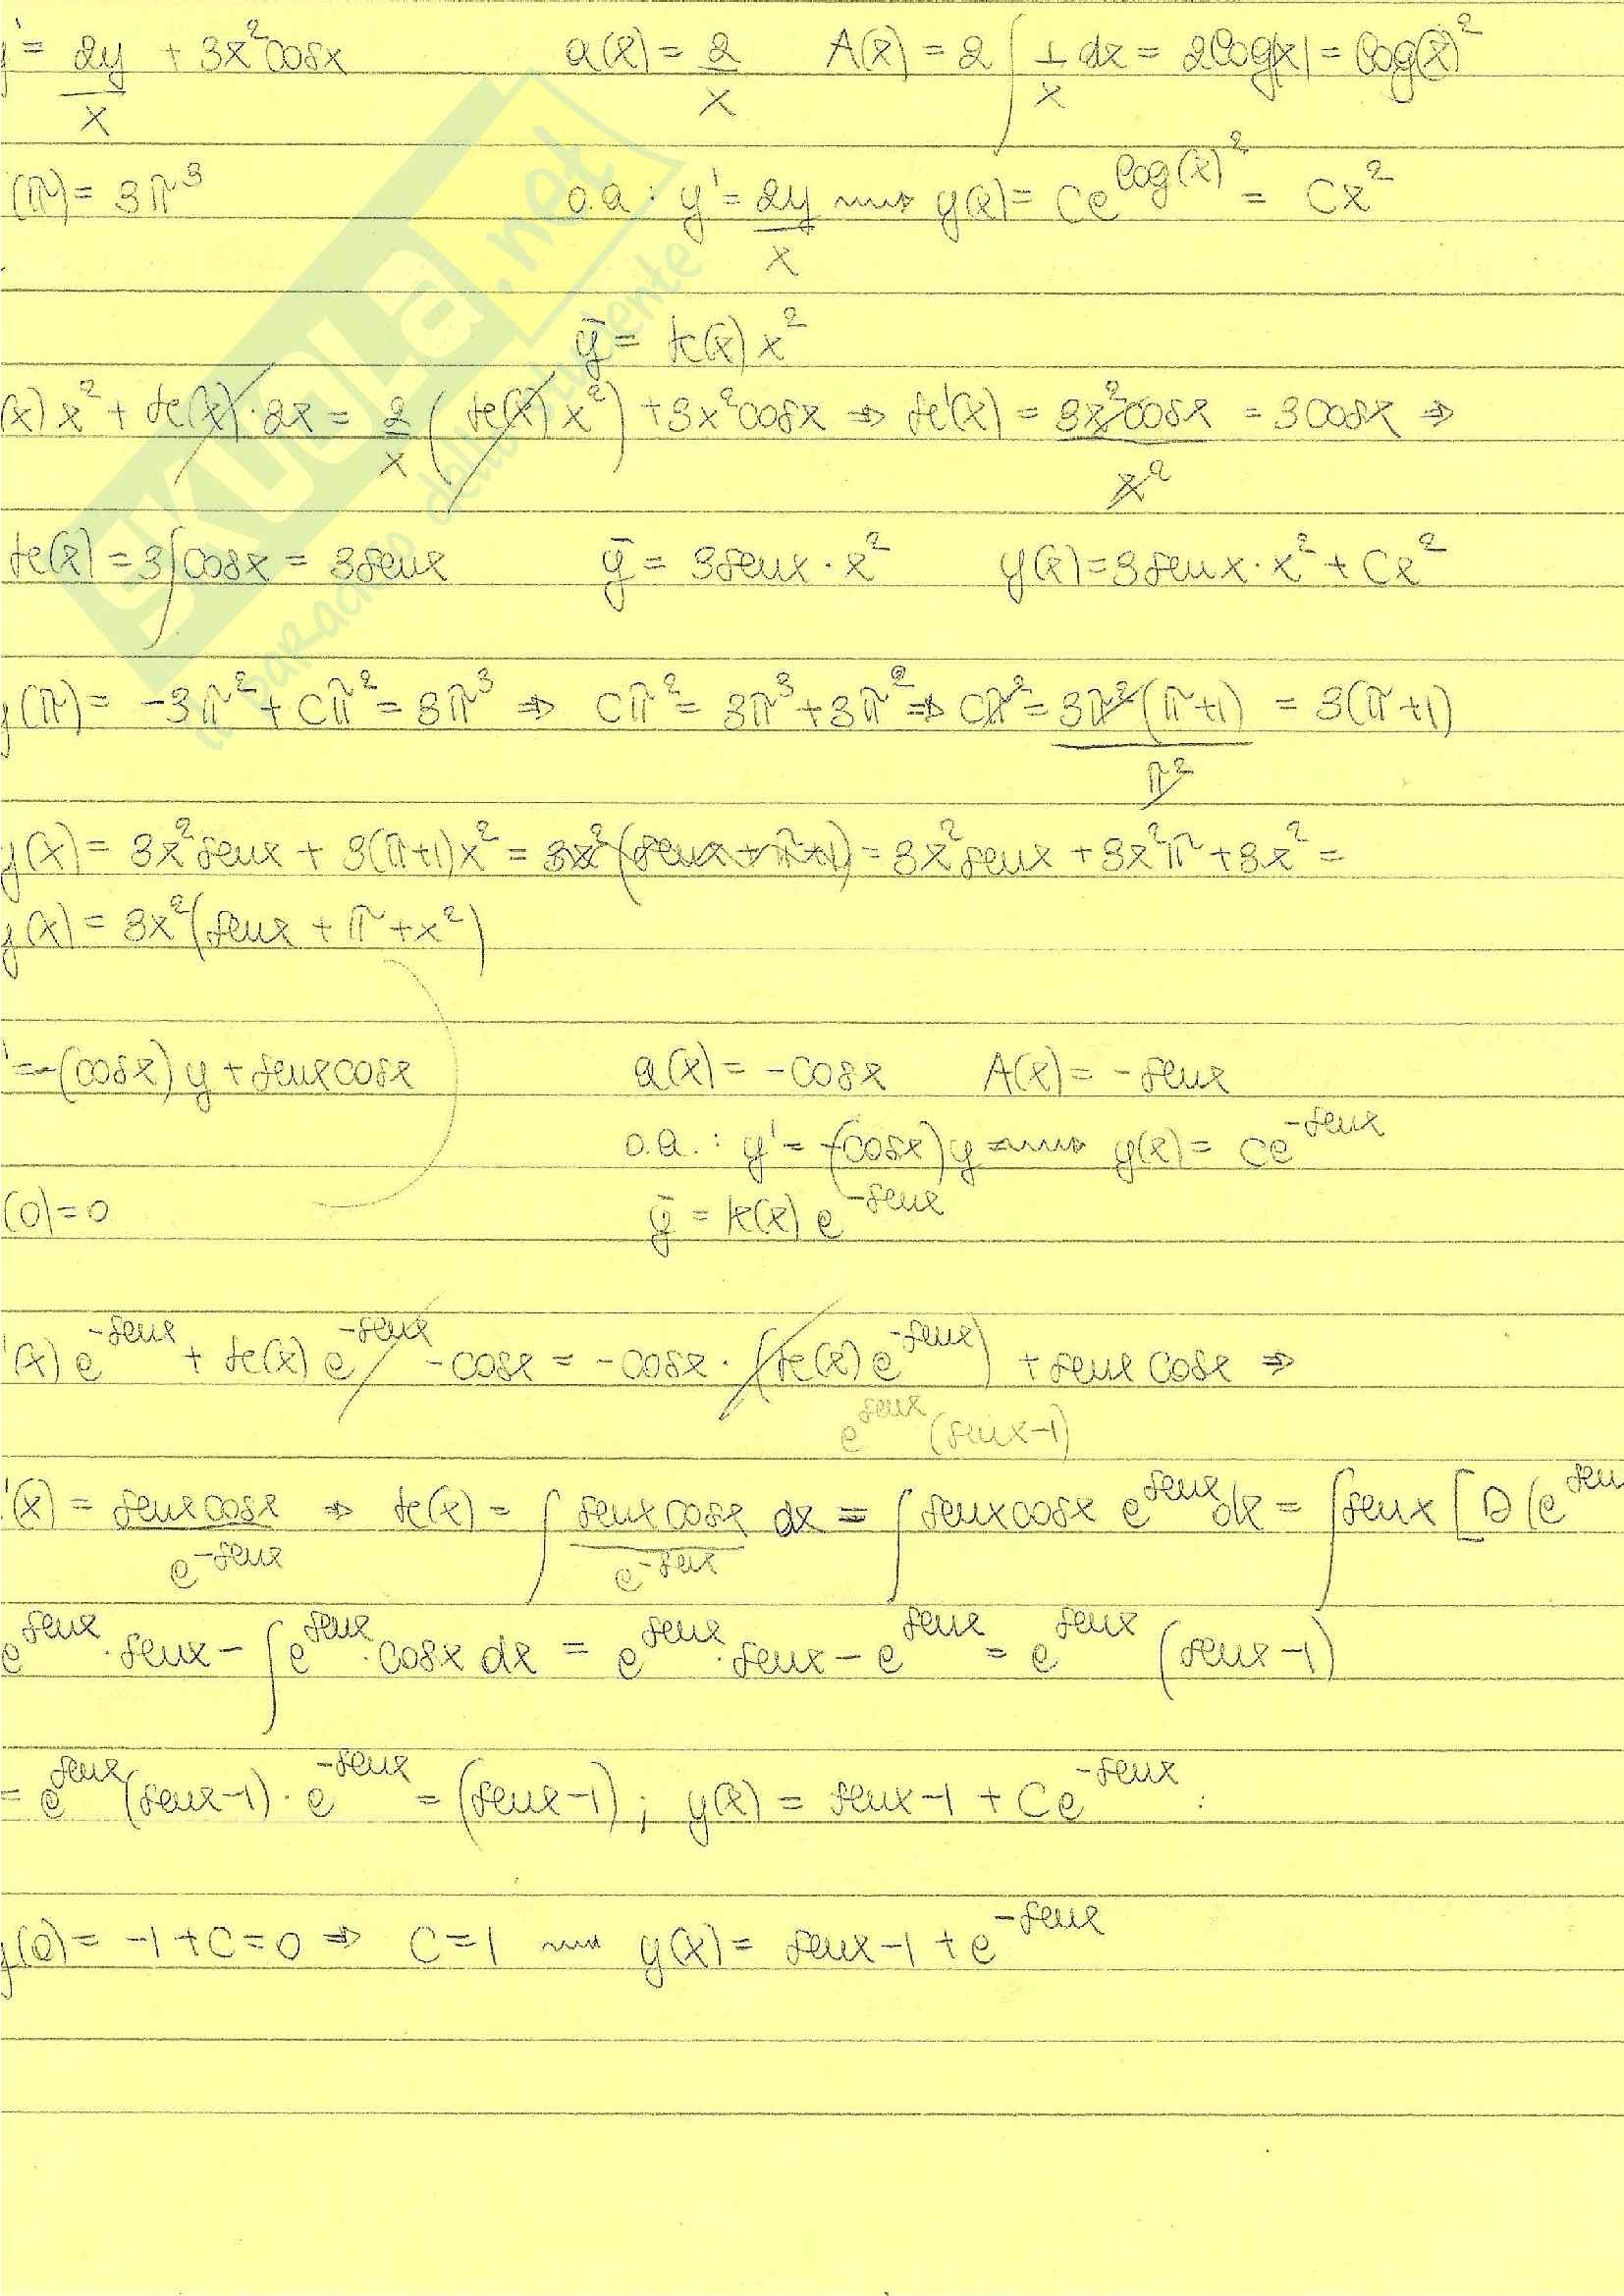 ' = 2y/x + 3x² cosx   a(x) = 2/x   A(x) = 2∫ 1/x dx = 2log|x| = log(x)²
(π) = 3π³   o.a : y' = 2y/x ⇝ y(x) = Ce^{log(x)²} = Cx²
ȳ = k(x) x²
(x) x² + k(x)·2x = 2/x (k(x) x²) + 3x² cosx ⇒ k'(x) = 3x² cosx / x² = 3cosx ⇒
k(x) = 3∫cosx = 3senx   ȳ = 3senx·x²   y(x) = 3senx·x² + Cx²
y(π) = -3π² + Cπ² = 3π³ ⇒ Cπ² = 3π³ + 3π² ⇒ Cπ² = 3π²(π+1) / π² = 3(π+1)
y(x) = 3x² senx + 3(π+1)x² = 3x²(senx + π+1) = 3x² senx + 3x²π + 3x² =
y(x) = 3x²(senx + π + x²)
' = -(cosx) y + senx cosx   a(x) = -cosx   A(x) = -senx
o.a. : y' = -(cosx) y ⇝ y(x) = Ce^{-senx}
(0) = 0   ȳ = k(x) e^{-senx}
'(x) e^{-senx} + k(x) e^{-senx} -cosx = -cosx·(k(x) e^{-senx}) + senx cosx ⇒
e^{senx} (senx-1)
'(x) = senx cosx / e^{-senx} ⇒ k(x) = ∫ senx cosx / e^{-senx} dx = ∫ senx cosx e^{senx} dx = ∫ senx [D(e^{sen
e^{senx}·senx - ∫ e^{senx}·cosx dx = e^{senx}·senx - e^{senx} = e^{senx} (senx-1)
= e^{senx} (senx-1)·e^{-senx} = (senx-1) ; y(x) = senx-1 + Ce^{-senx}
y(0) = -1 + C = 0 ⇒ C = 1 ⇝ y(x) = senx-1 + e^{-senx}
SKUOLa.net
il paradiso dello studente